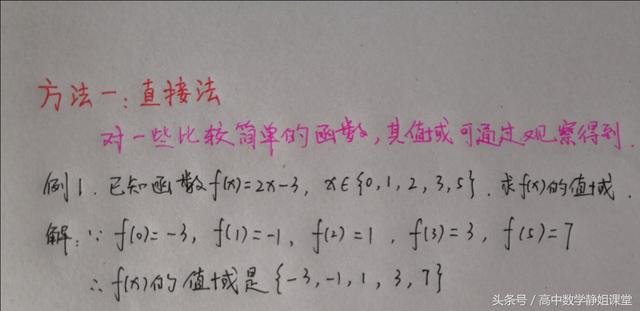 方法一:直接法
对一些比较简单的函数,其值域可通过观察得到.
例1.已知函数f(x)=2x-3, x∈{0,1,2,3,5}.求f(x)的值域.
解:∵f(0)=-3, f(1)=-1, f(2)=1, f(3)=3, f(5)=7
∴f(x)的值域是{-3,-1,1,3,7}
头条号 / 高中数学静姐课堂